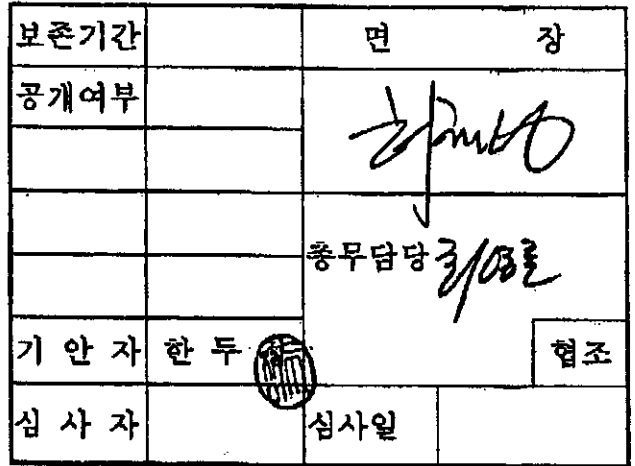 보존기간 면 장
공개여부
총무담당
기 안 자 한 두 협조
심 사 자 심사일